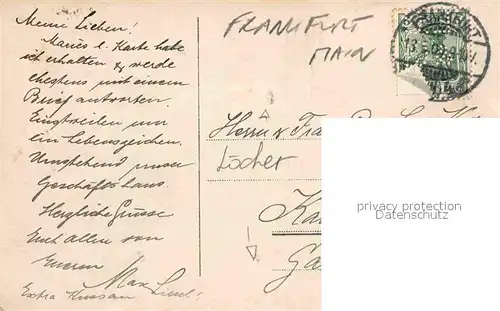 Meine Lieben!
Maries l. Karte habe
ich erhalten & werde
ehestens mit einem
Brief antworten.
Einstweilen nur
ein Lebenszeichen.
Umstehend unser
Geschäftshaus.
Herzliche Grüsse
Euch Allen von
Euerem
Max
Extra
FRANKFURT
MAIN
Herrn u. Frau
Löcher
privacy protection
Datenschutz